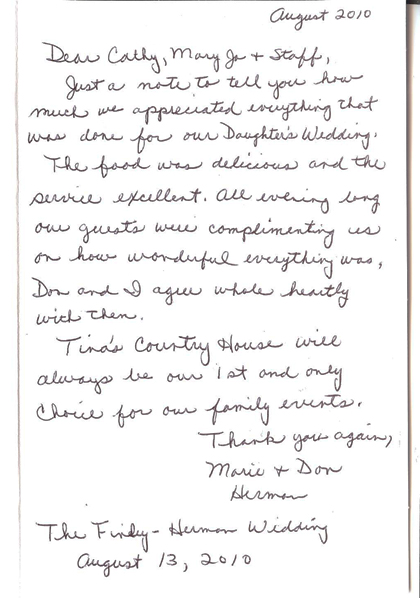 August 2010
Dear Cathy, Mary Jo + Staff,
Just a note to tell you how
much we appreciated everything that
was done for our Daughter's Wedding.
The food was delicious and the
service excellent. All evening long
our guests were complimenting us
on how wonderful everything was,
Don and I agree whole heartly
with them.
Tina's Country House will
always be our 1st and only
Choice for our family events.
Thank you again,
Marie + Don
Herman
The - Herman Wedding
August 13, 2010